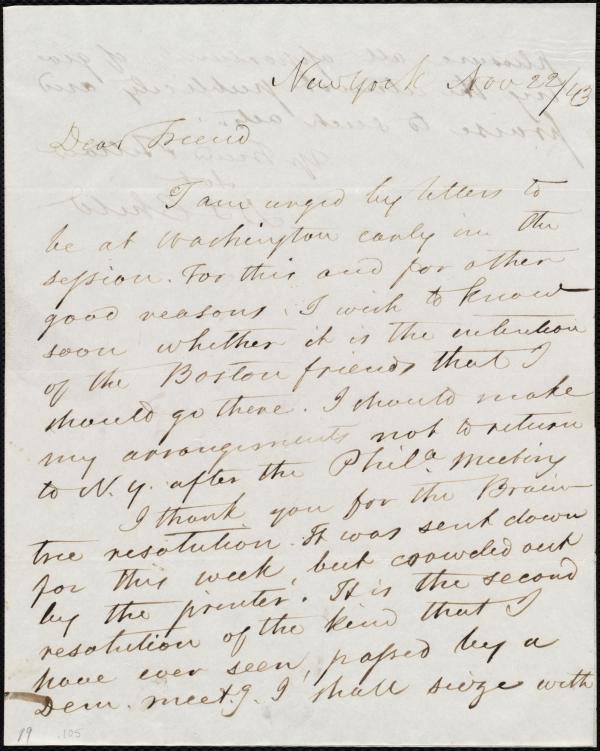 New York Nov 22/43
Dear Friend
I am urged by letters to
be at Washington early in the
session. For this and for other
good reasons, I wish to know
soon whether it is the intention
of the Boston friends that I
should go there. I should make
my arrangements not to return
to N.Y. after the Phila. Meeting
I thank you for the Brain-
tree resolution. It was sent down
for this week, but crowded out
by the printer. It is the second
resolution of the kind that I
have ever seen, passed by a
Dem. meetg. I shall seize with
19 .105